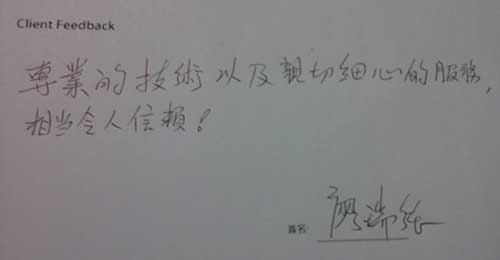 Client Feedback
專業的技術以及親切細心的服務,
相當令人信賴!
簽名: